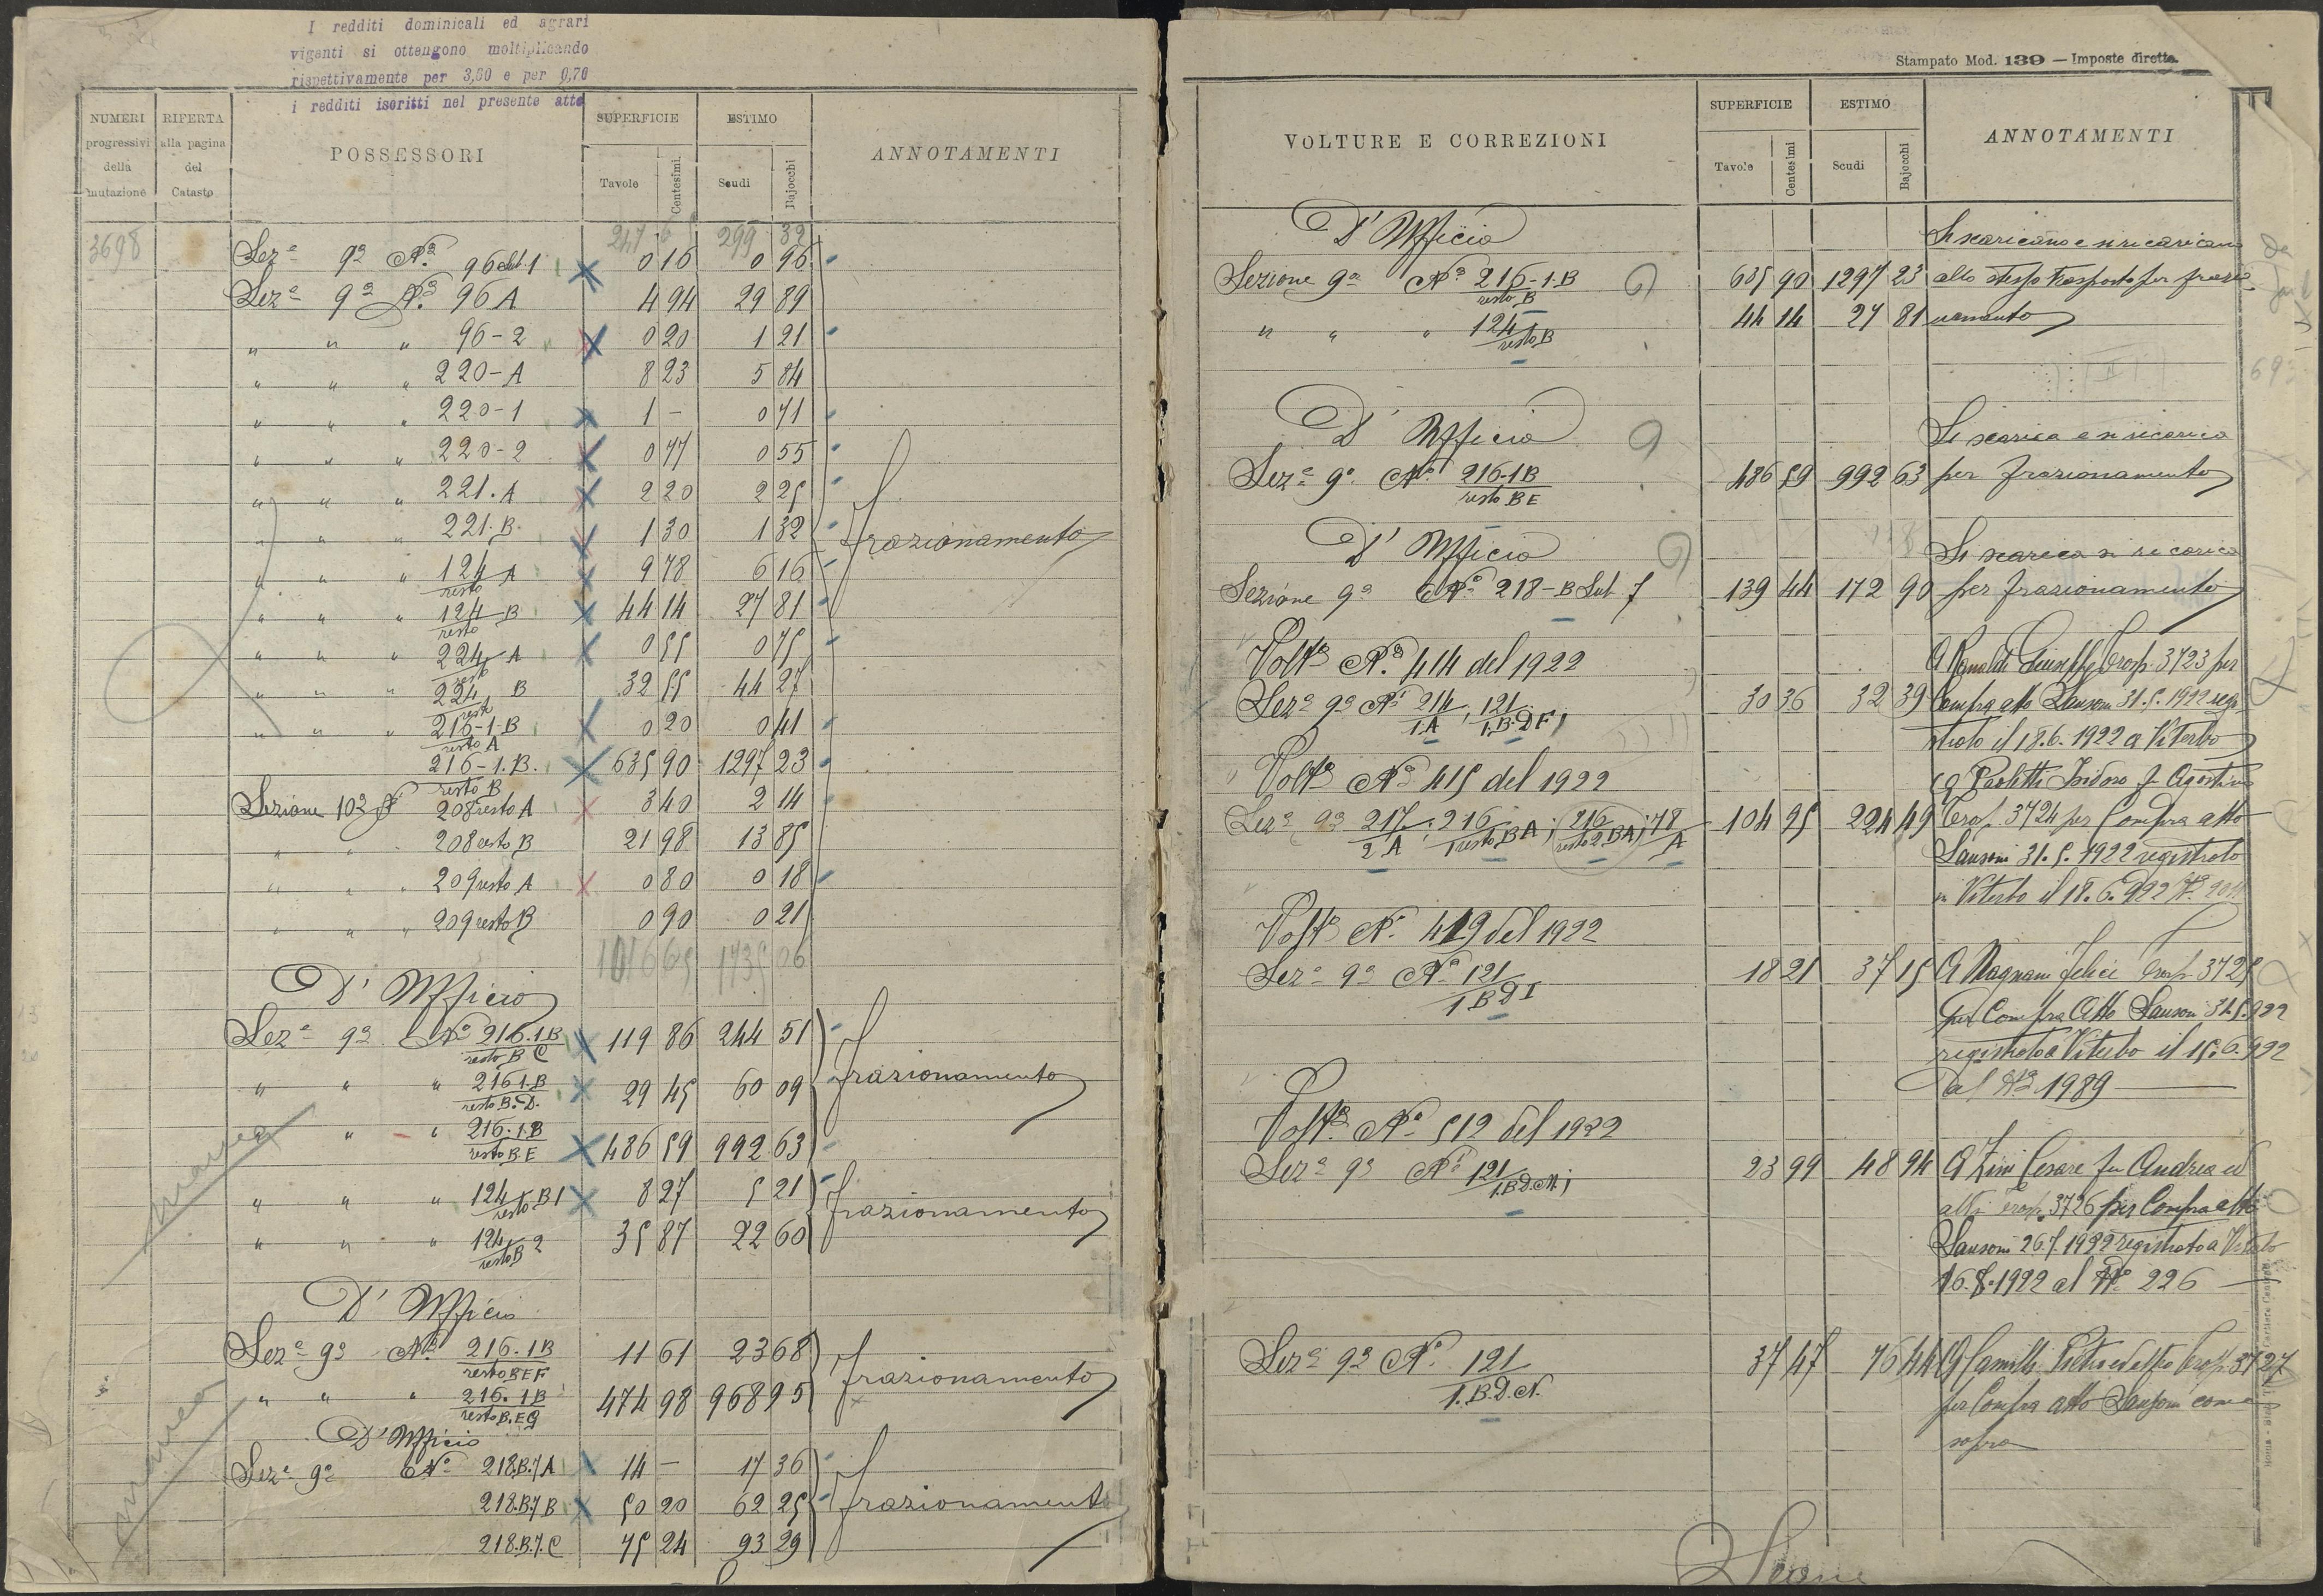 I redditi dominicali ed agrari
vigenti si ottengono moltiplicando
rispettivamente per 3,60 e per 0,70
i redditi iscritti nel presente atto
NUMERI progressivi della mutazione
RIFERTA alla pagina del Catasto
POSSESSORI
SUPERFICIE
Tavole Centesimi
ESTIMO
Scudi Bajocchi
ANNOTAMENTI
3698 247 6 299 32
Sez.e 9a No. 96 sub 1 0 16 0 96
Sez.e 9a No. 96 A 4 94 29 89
" " " 96-2 0 20 1 21
" " " 220-A 8 23 5 84
" " " 220-1 1 – 0 71
" " " 220-2 0 77 0 55
" " " 221.A 2 20 2 25
" " " 221.B. 1 30 1 32 frazionamento
" " " 124 resto A 9 78 6 16
" " " 124 resto B 44 14 27 81
" " " 224 resto A 0 55 0 75
" " " 224 resto B 32 55 44 27
" " " 216-1.B resto A 0 20 0 41
216-1.B. resto B 635 90 1297 23
Sezione 10a 208 resto A 3 40 2 14
" " 208 resto B 21 98 13 85
" " " 209 resto A 0 80 0 18
" " " 209 resto B 0 90 0 21
1016 65 1735 06
D' Ufficio
Sez.e 9a No 216.1B resto B C 119 86 244 51
" " " 216 1.B resto B.D. 29 45 60 09 frazionamento
" " 216.1.B resto B.E 486 59 992 63
" " " 124 resto B 1 8 27 5 21
" " " 124 resto B 2 35 87 22 60 frazionamento
D' Ufficio
Sez.e 9a No. 216.1B resto B E F 11 61 23 68
" " " 216.1B resto B.E G 474 98 968 95 frazionamento
D' Ufficio
Sez.e 9a No 218.B.7 A 14 – 17 36
218.B.7 B 50 20 62 25 frazionamento
218.B.7.C 75 24 93 29
Stampato Mod. 139 — Imposte dirette.
VOLTURE E CORREZIONI
SUPERFICIE
Tavole Centesimi
ESTIMO
Scudi Bajocchi
ANNOTAMENTI
D' Ufficio Si scaricano e si ricaricano
Sezione 9a No 216-1.B resto B 635 90 1297 23 allo stesso trasporto per frazio-
" " " 124 resto B 44 14 27 81 namento
D' Ufficio Si scarica e si ricarica
Sez.e 9a No. 216-1B resto B E 486 59 992 63 per frazionamento
D' Ufficio Si scarica si ricarica
Sezione 9a No 218-B Sub 7 139 44 172 90 per frazionamento
Volta No. 414 del 1922 A Giuseppe Trasp. 3723 per
Sez.e 9a Ni 214 1.A , 121 1.B.D F; 30 36 32 39 Compra atto Sansoni 31.5.1922 regi-
strato il 18.6.1922 a Viterbo
Volta No 415 del 1922 a Paoletti Isidoro f Agostino
Sez.e 9a 217 2 A ; 216 1 resto B A ; 216 resto 2 B A ; 78 A 104 95 224 49 Trasp. 3724 per Compra atto
Sansoni 31.5.1922 registrato
in Viterbo il 18.6.922
Volta No. 419 del 1922
Sez.e 9a No 121 1 B D I 18 21 37 15 A Magnani Felice Trasp. 3725
per Compra Atto Sansoni 31.5.922
registrato a Viterbo il 15.6.922
al No 1989
Volta No 512 del 1922
Sez.e 9a Ni 121 1.B D.M; 23 99 48 94 A Zini Cesare fu Andrea ed
altri Trasp. 3726 per Compra atto
Sansoni 26.7.1922 registrato a Viterbo
16.8.1922 al No 226
Sez.e 9a No. 121 1.B.D.N. 37 47 76 44 A Camilli Pietro Trasp. 3727
per Compra atto Sansoni come
sopra